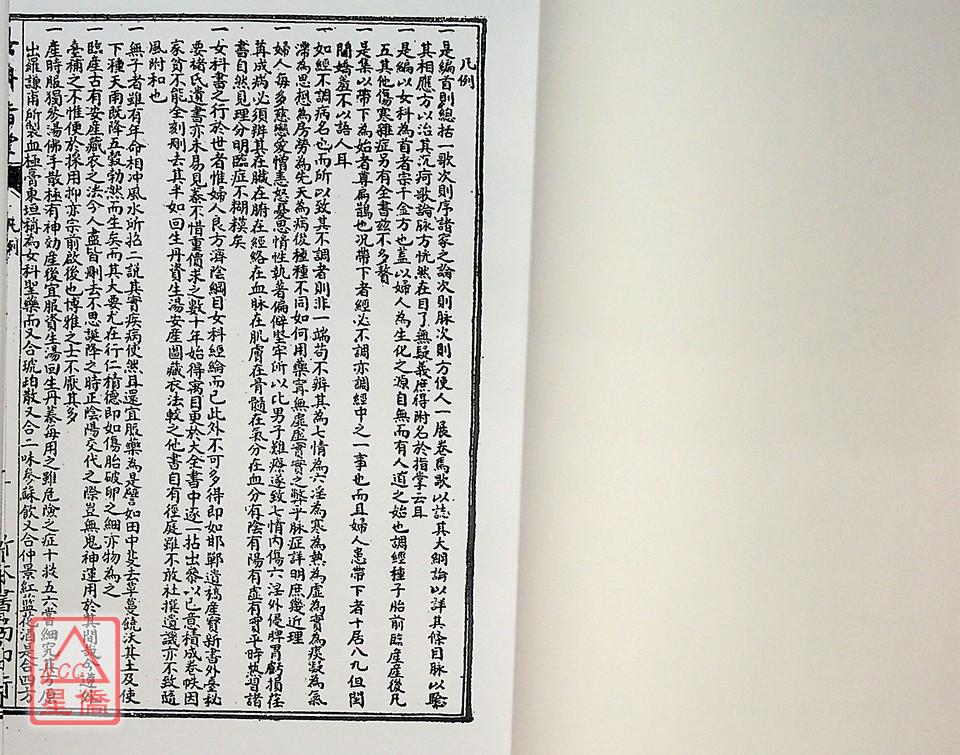 凡例
一是編首則總括一歌次則序諸家之論次則脉次則方便人一展卷焉歌以誌其大綱論以詳其條目脉以驗
其相應方以治其沉疴歌論脉方恍然在目了無疑義庶得附名於指掌云耳
一是編以女科為首者宗千金方也蓋以婦人為生化之源自無而有人道之始也調經種子胎前臨產產後凡
五其他傷寒雜症另有全書茲不多贅
一是集以帶下為始者尊扁鵲也况帶下者經必不調亦調經中之一事也而且婦人患帶下者十居八九但閨
閫嬌羞不以語人耳
一如經不調病名也而所以致其不調者則非一端苟不辨其為七情為六淫為寒為熱為虛為實為痰凝為氣
滯為思想為房勞為先天為病後種種不同如何用藥寧無虛虛實實之弊乎脉症詳明庶幾近理
一婦人每多慈戀愛憎恚憂思情性執著偏僻堅牢所以比男子難療遂致七情內傷六淫外侵脾胃虧損荏
苒成病必須辨其在臟在腑在經絡在血脉在肌膚在骨髓在氣分在血分有陰有陽有虛有實平時熟習諸
書自然見理分明臨症不糊糢矣
一女科書之行於世者惟婦人良方濟陰綱目女科經綸而已此外不可多得即如邯鄲遺稿產寶新書外臺秘
要褚氏遺書亦未易見泰不惜重價求之數十年始得寓目更於大全書中逐一拈出參以己意積成卷帙因
家貧不能全刻刪去其半如回生丹資生湯安產圖藏衣法較之他書自有徑庭雖不敢杜撰遺譏亦不致隨
風附和也
一無子者雖有年命相冲風水所招二說其實疾病使然耳還宜服藥為是譬如田中必去草蔓饒沃其土及使
下種天雨既降五穀勃然而生矣而其大要尤在行仁積德即如傷胎破卵之細亦物為之
一臨產古有安產藏衣之法今人盡皆刪去不思誕降之時正陰陽交代之際豈無鬼神運用於其間哉今遵外
臺補之不惟便於採用抑亦宗前啟後也博雅之士不厭其多
一產時服獨參湯佛手散極有神効產後宜服資生湯回生丹泰每用之雖危險之症十拔五六嘗細究其方原
出羅謙甫所製血極膏東垣稱為女科聖藥而又合琥珀散又合二味參蘇飲又合仲景紅藍花酒是合四方
凡例
星僑
CCC